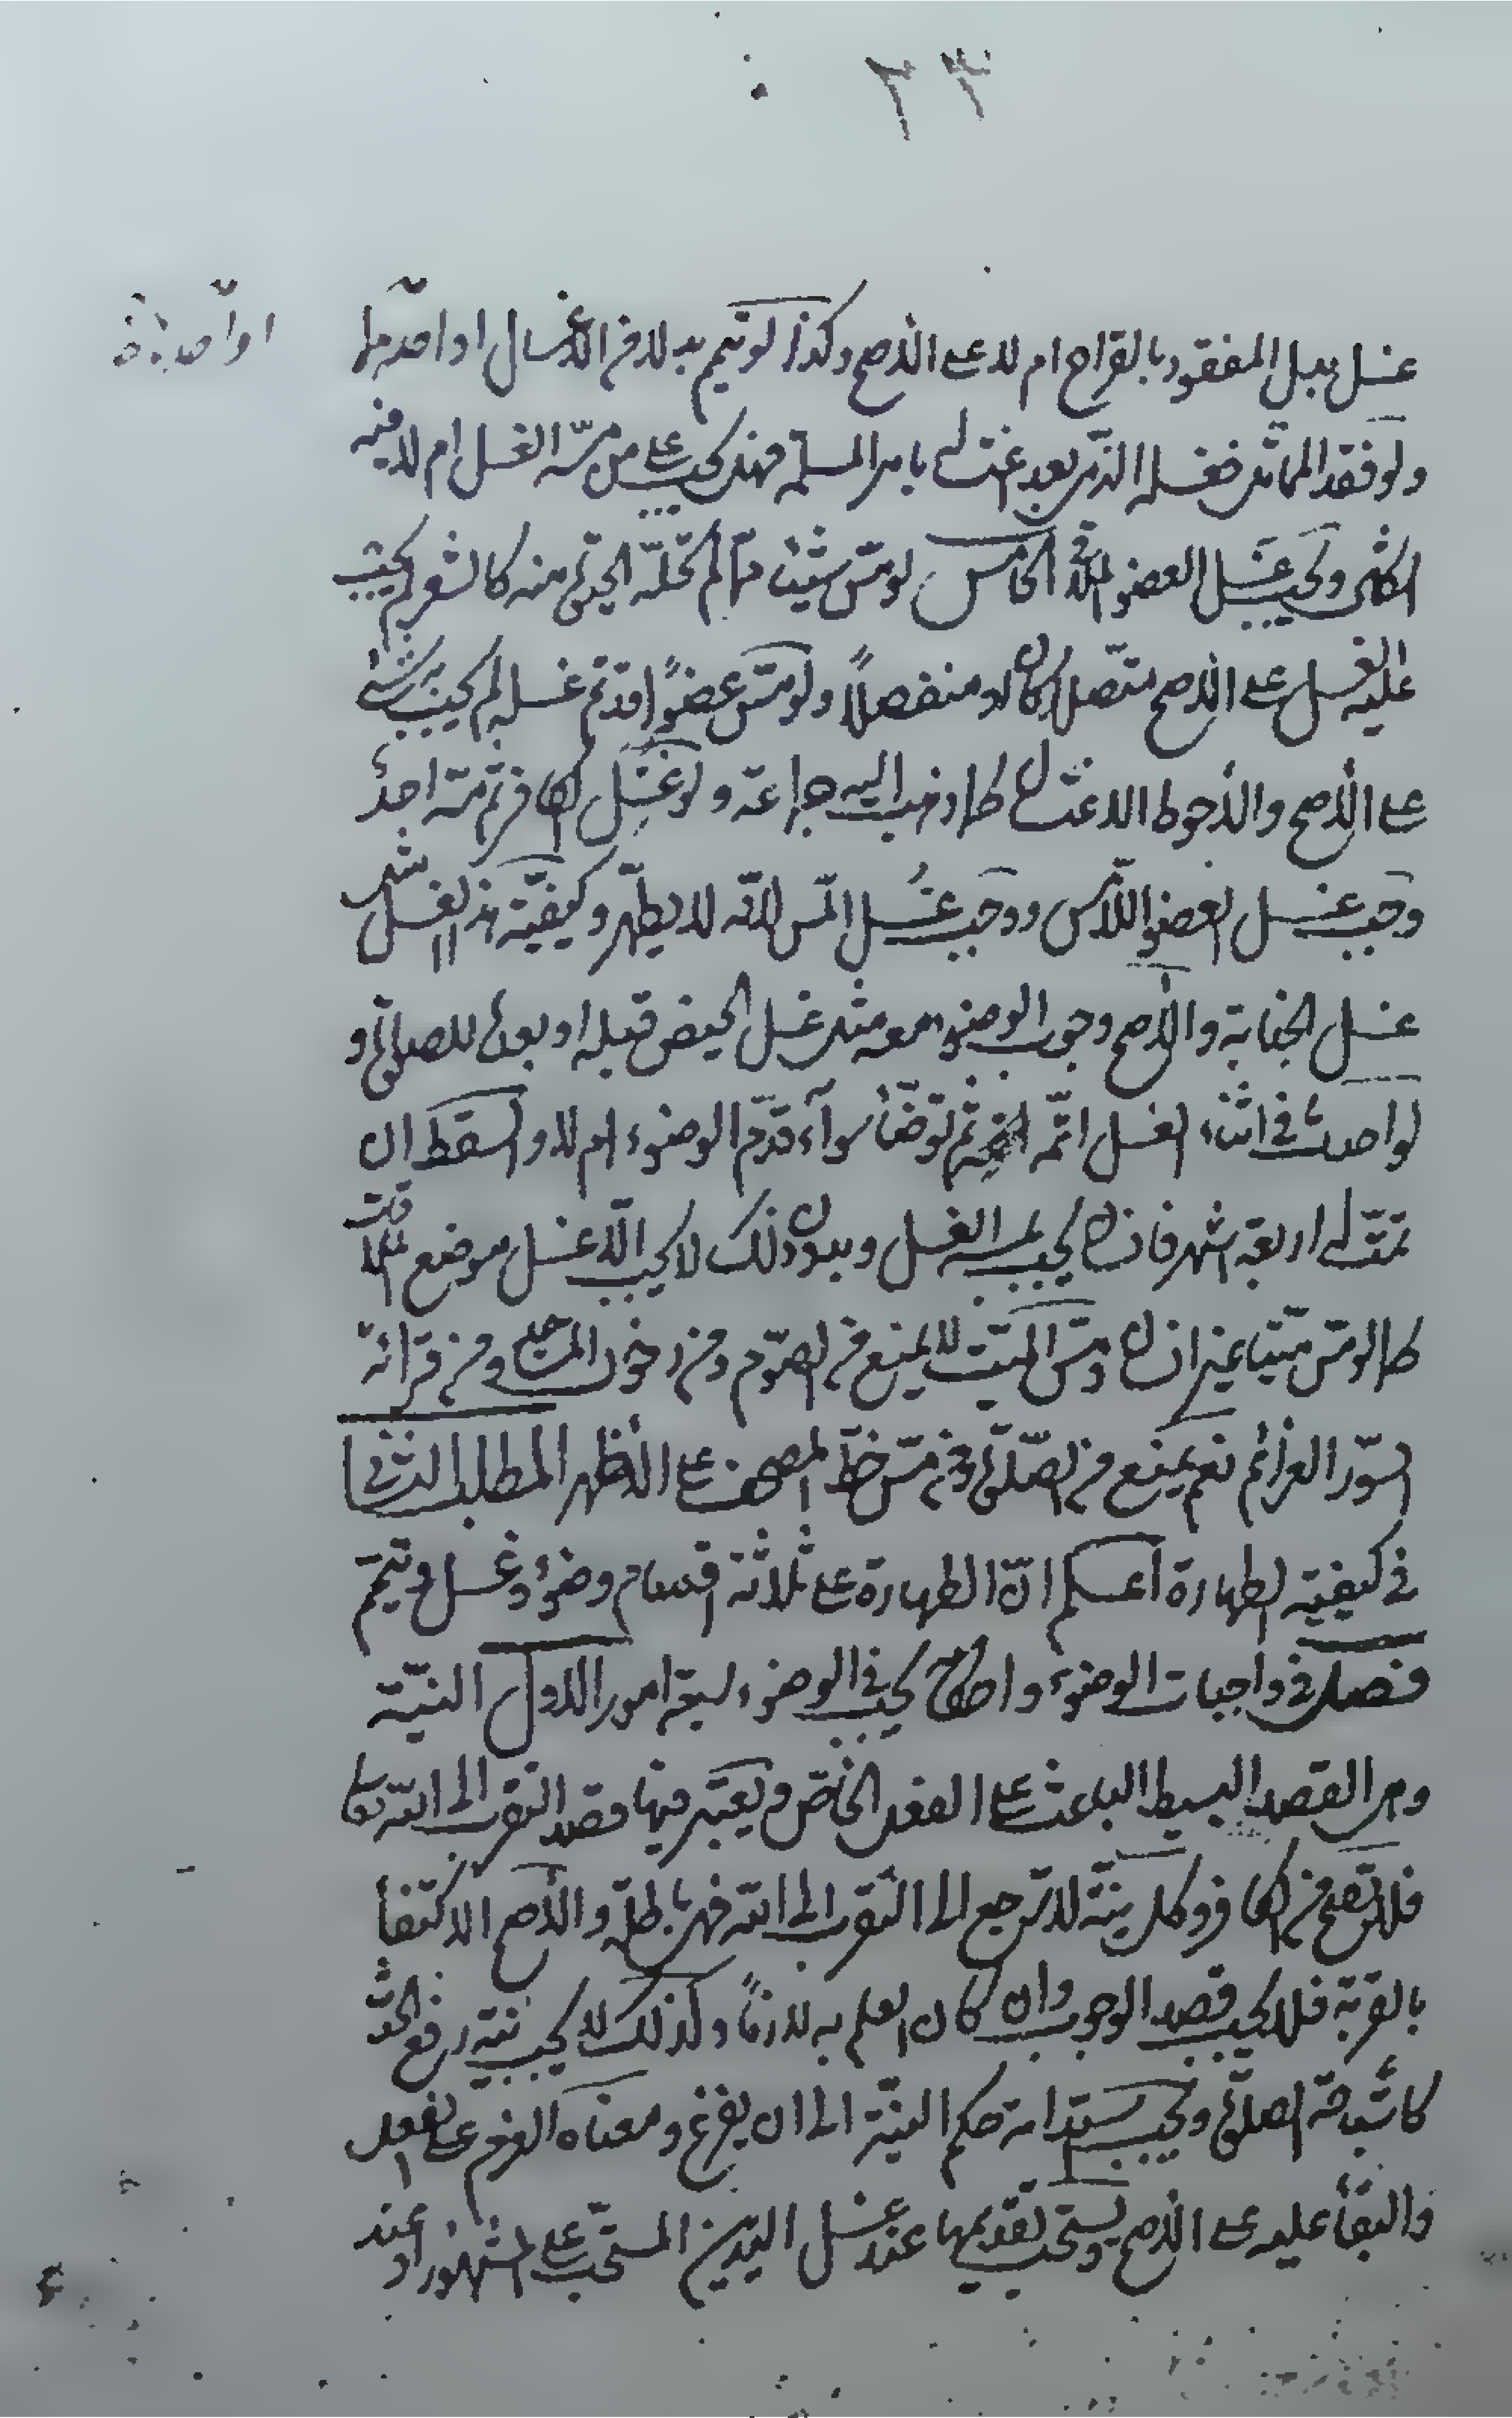 ٢٣
غسل بدل المفقود بالقراح ام لا على الأصح وكذا لو تيمم بدلا من الأغسال او احدها
او احدها خ
ولو فقد المماثل فغسله الذمى بعد اغتساله بامر المسلم فهل يجب على من مسّه الغسل ام لا فيه
اشكال ويجب غسل العضو الملاقى الخامس لو مسّ شيئا ممّا لم تحلّه الحيوة منه كالشعر لم يجب
عليه الغسل على الأصح متّصلا كان او منفصلاً ولو مسّ عضوًا قد تم غسله لم يجب شئ
على الأصح والأحوط الاغتسال كما ذهب اليه جماعة ولو غسّل الكافر ثم مسّه احدٌ
وجب غسل العضو اللامس ووجب غُسل المسّ لأنّه لا يطهر وكيفيّة هذا الغسل مثل
غسل الجنابة والأصح وجوب الوضوء معه مثل غسل الحيض قبله او بعده للصلوة و
لو احدث فى اثناء الغسل اتمّه ثم توضّأ سواء قدّم الوضوء ام لا والسقط ان
تمّت له اربعة اشهر فانه يجب بمسه الغسل وبدون ذلك لا يجب الّا غسل موضع الملاقات
كما لو مسّ ميّتا غير انسان ومسّ الميّت لا يمنع من الصوم ومن دخول المساجد ومن قرائة
السّور العزائم نعم يمنع من الصّلوة ومن مسّ خطّ المصحف على الأظهر المطلب الثانى
فى كيفية الطهارة اعلم انّ الطهارة على ثلاثة اقسام وضوء وغسل وتيمّم
فصل فى واجبات الوضوء واحكامه يجب فى الوضوء سبعة امور الاول النيّة
وهى القصد البسيط الباعث على الفعل الخاصّ ويعتبر فيها قصد التقرب الى الله تعالى
فلا تصح من الكافر وكل نيّة لا ترجع الى التقرب الى الله فهى باطلة والأصح الاكتفاء
بالقربة فلا يجب قصد الوجوب وان كان العلم به لازمًا وكذلك لا يجب نيّة رفع الحدث
كاستباحة الصلوة ويجب استدامة حكم النيّة الى ان يفرغ ومعناه العزم على الفعل
والبقاء عليه على الأصح ويستحب تقديمها عند غسل اليدين المستحبّ على المشهور او عند